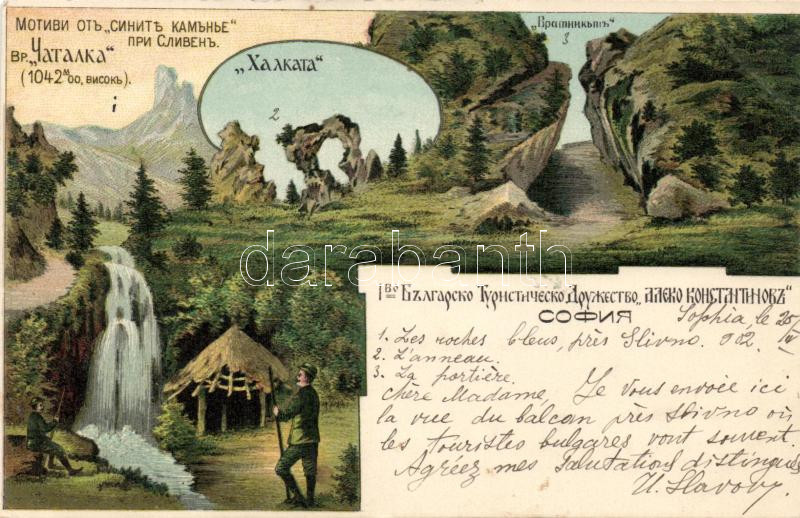 Мотиви отъ „Сините камъне“
при Сливенъ.
Вр. „Чаталка“
(1042 м 00, високъ).
1
„Халката“
2
„Вратникътъ“
3
darabanth
I во Българско Туристическо Дружество „Алеко Константиновъ“
СОФИЯ
Sophia, le 25/IV
1. Les roches bleus, près Slivno. 902.
2. L'anneau.
3. La portière.
Chère Madame, Je vous envoie ici
la vue du balcan près Slivno où
les touristes bulgares vont souvent.
Agréez mes salutations distingués
Slavov